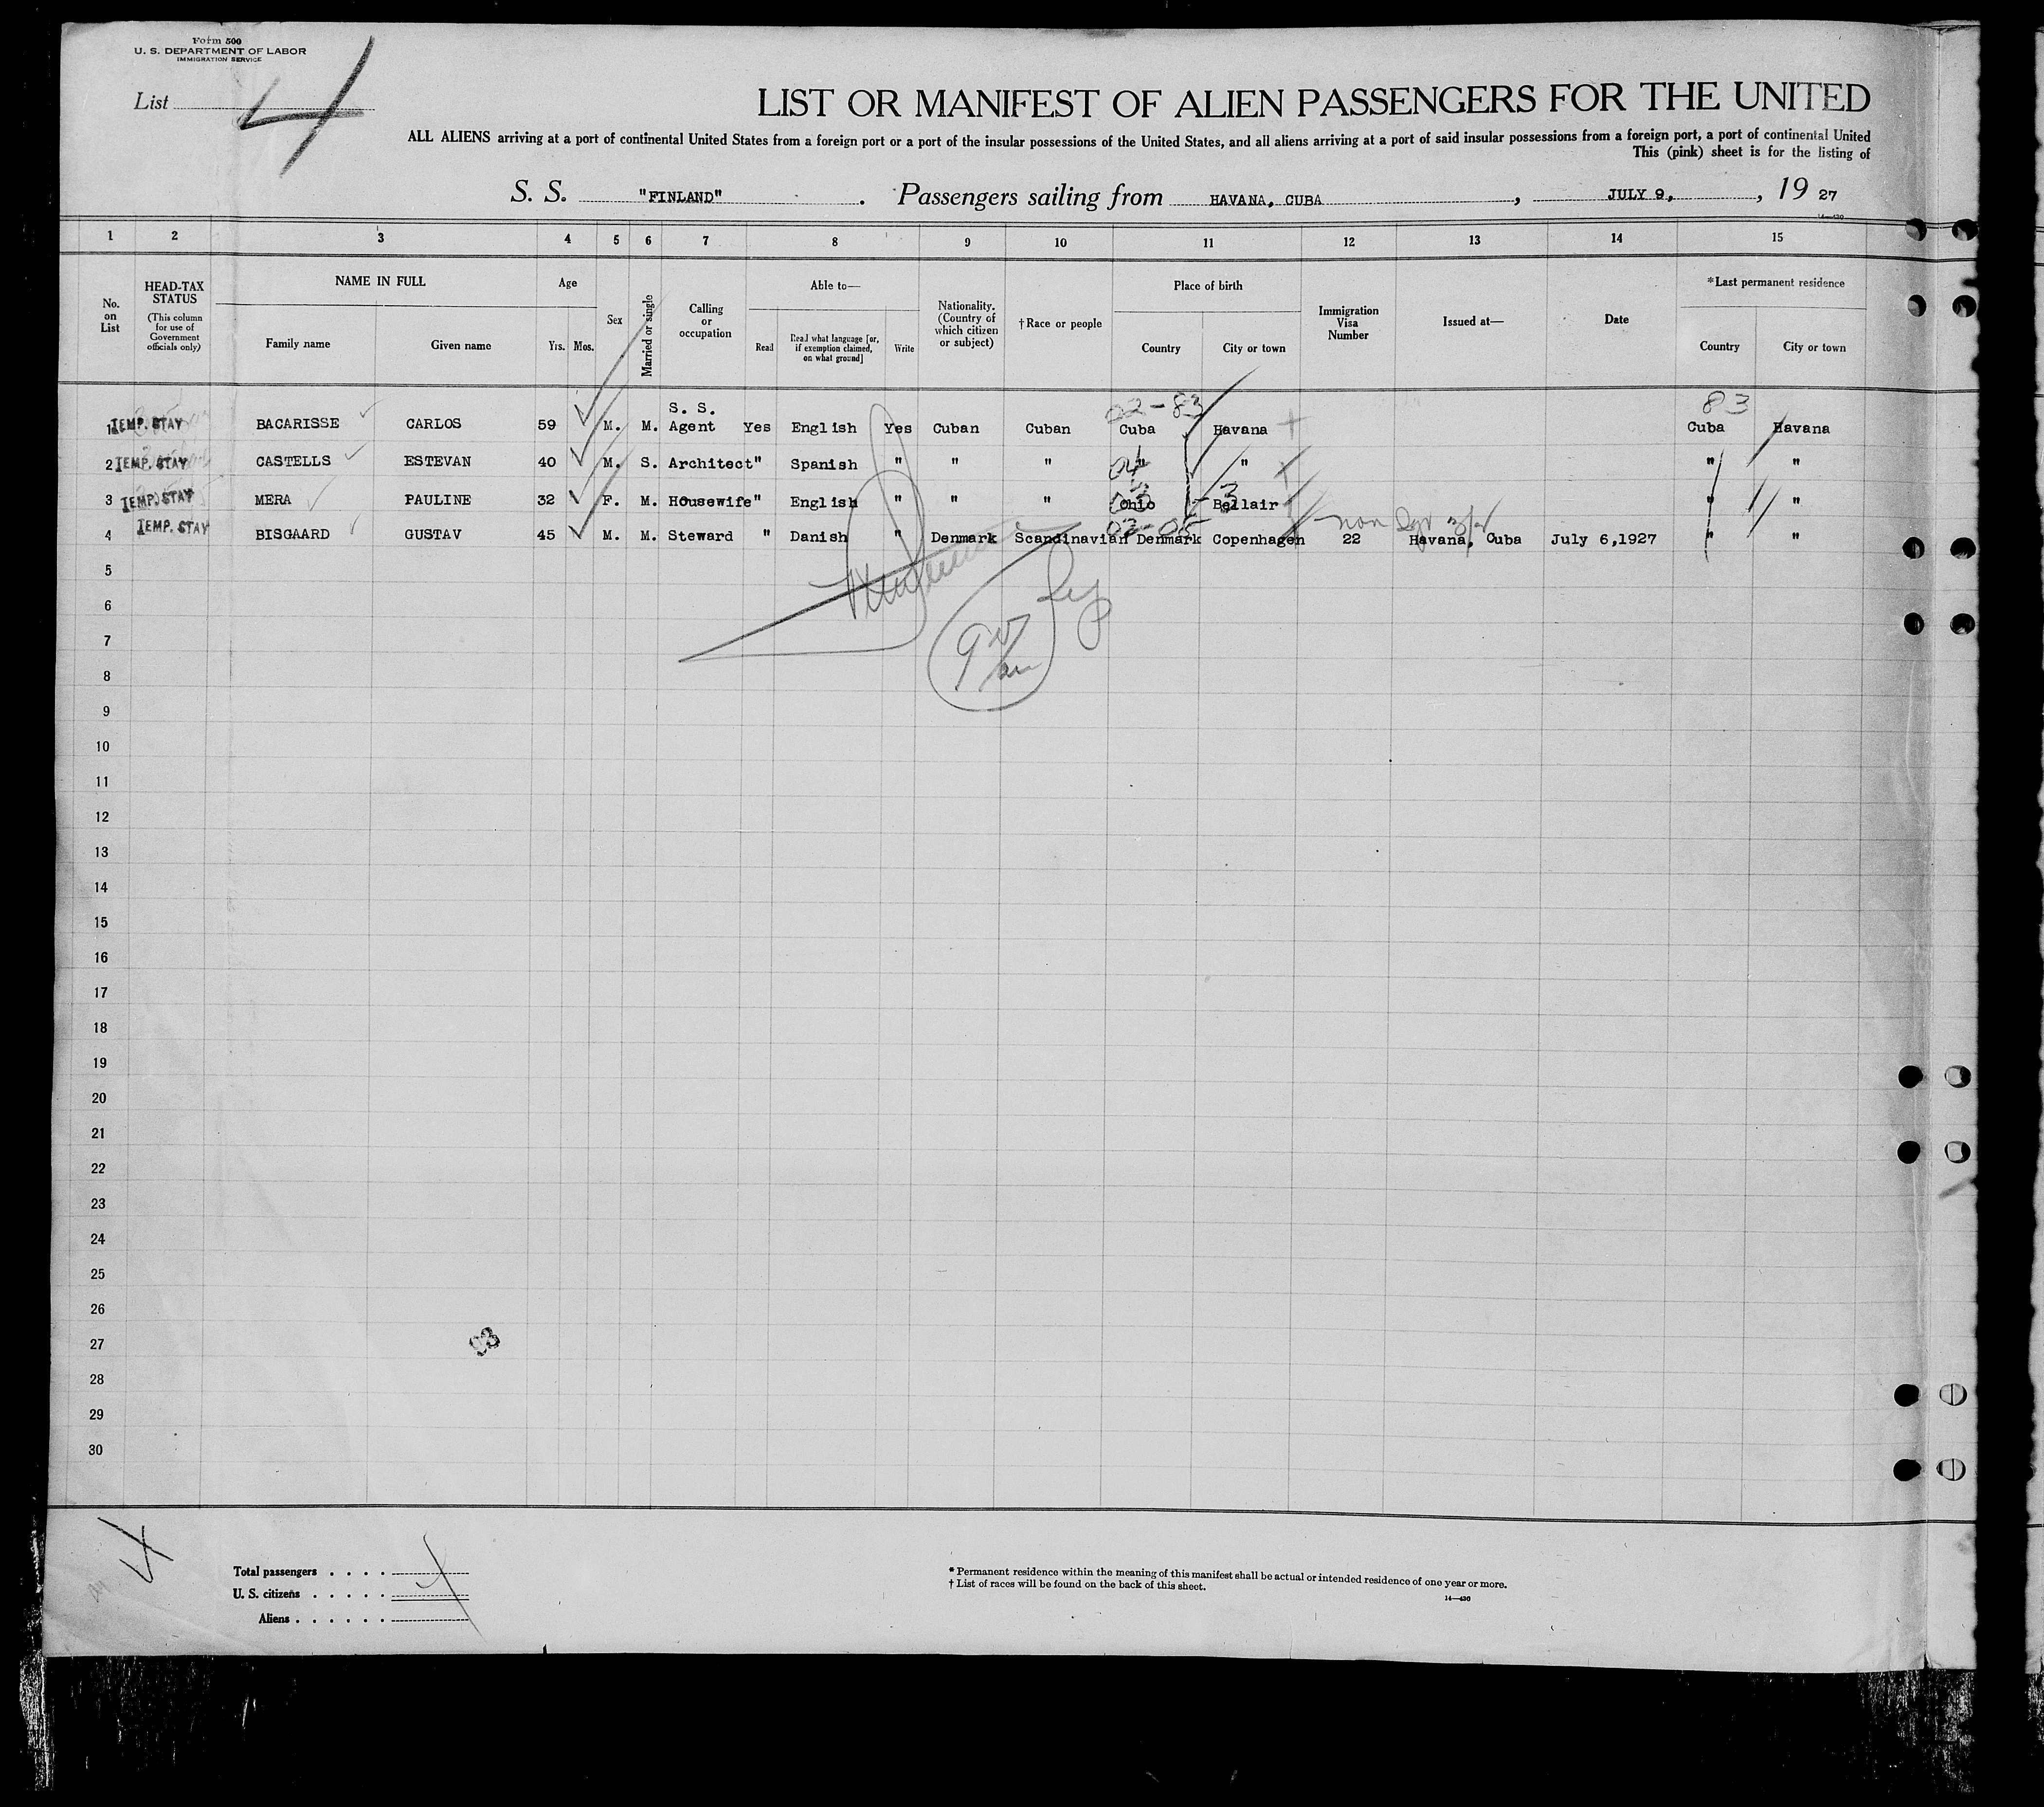 Form 500
U. S. DEPARTMENT OF LABOR
IMMIGRATION SERVICE
List 4
LIST OR MANIFEST OF ALIEN PASSENGERS FOR THE UNITED
ALL ALIENS arriving at a port of continental United States from a foreign port or a port of the insular possessions of the United States, and all aliens arriving at a port of said insular possessions from a foreign port, a port of continental United
This (pink) sheet is for the listing of
S. S. "FINLAND" . Passengers sailing from HAVANA, CUBA , JULY 9, , 19 27
14—430
1 2 3 4 5 6 7 8 9 10 11 12 13 14 15
No. on List
HEAD-TAX STATUS
(This column for use of Government officials only)
NAME IN FULL
Family name Given name
Age
Yrs. Mos.
Sex
Married or single
Calling or occupation
Able to—
Read
Read what language [or, if exemption claimed, on what ground]
Write
Nationality. (Country of which citizen or subject)
†Race or people
Place of birth
Country City or town
Immigration Visa Number
Issued at—
Date
*Last permanent residence
Country City or town
02-83 83
1 TEMP. STAY BACARISSE CARLOS 59 M. M. S. S. Agent Yes English Yes Cuban Cuban Cuba Havana Cuba Havana
2 TEMP. STAY CASTELLS ESTEVAN 40 M. S. Architect " Spanish " " " 04 " " " "
3 TEMP. STAY MERA PAULINE 32 F. M. Housewife " English " " " Ohio 3 Bellair " "
02-05 non
4 TEMP. STAY BISGAARD GUSTAV 45 M. M. Steward " Danish " Denmark Scandinavian Denmark Copenhagen 22 Havana, Cuba July 6,1927 " "
5
6
7
8
9
10
11
12
13
14
15
16
17
18
19
20
21
22
23
24
25
26
27
28
29
30
Total passengers . . . .
U. S. citizens . . . . .
Aliens . . . . . .
4
* Permanent residence within the meaning of this manifest shall be actual or intended residence of one year or more.
† List of races will be found on the back of this sheet.
14—430